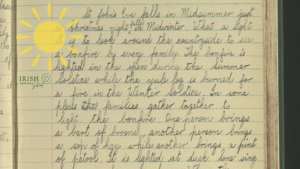 St John's Eve falls in Midsummer just
as Christmas night falls in Midwinter. What a sight
is to look around the countryside to see
a bonfire by every family. The bonfire is
lighted in the open during the summer
solstice while the yule log is burned for
a fire in the Winter Solstice. In some
places the families gather together to
light the bonfire. One person brings
a of another person brings
a sop of hay while another brings a pint
of petrol. It is lighted at dusk. Some sing
IRISH